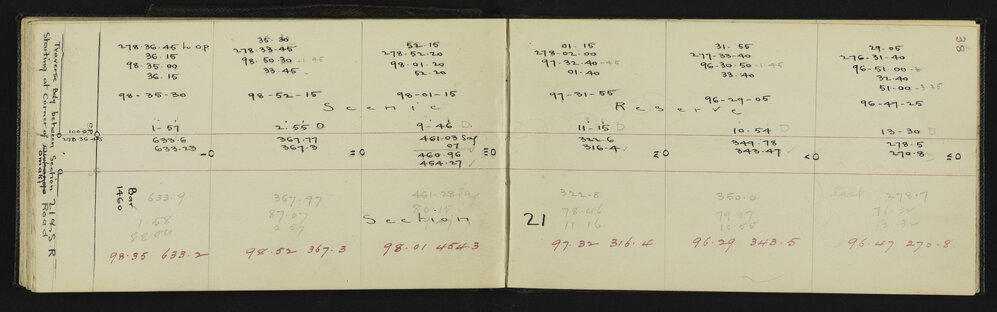 38
Traverse Bdy between Section 21 & S R
Starting at Corner of Road
OMAKA
278-36-45 to O.P
36.15
98-35-00
36.15
98-35-30
1-57
633.6
633.23
633.9
1-58
98.35 633.2
Bar
1460
35-30
278-33-45
98-50-30
33.45
98-52-15
2.55 D
367.77
367.3
367.97
87.07
2.57
98.52 367.3
52-15
278-52-20
98-01-20
52-20
98-01-15
9-46 D
461.03 Sag
07
460.96
454.27
461.28
98.01 454.3
Scenic Reserve
Section 21
01-15
278-02-00
97-32-40
01-40
97-31-55
11-15 D
322.6
316.4
322.8
78.46
11-16
97.32 316.4
31-55
277-33-40
96-30-50
33-40
96-29-05
10-54 D
349.78
343.47
350.0
79 07
10.55
96.29 343.5
29-05
276-31-40
96-51-00
32-40
51-00
96-47-25
13-30 D
278.5
270.8
278.7
13-32
96.47 270.8